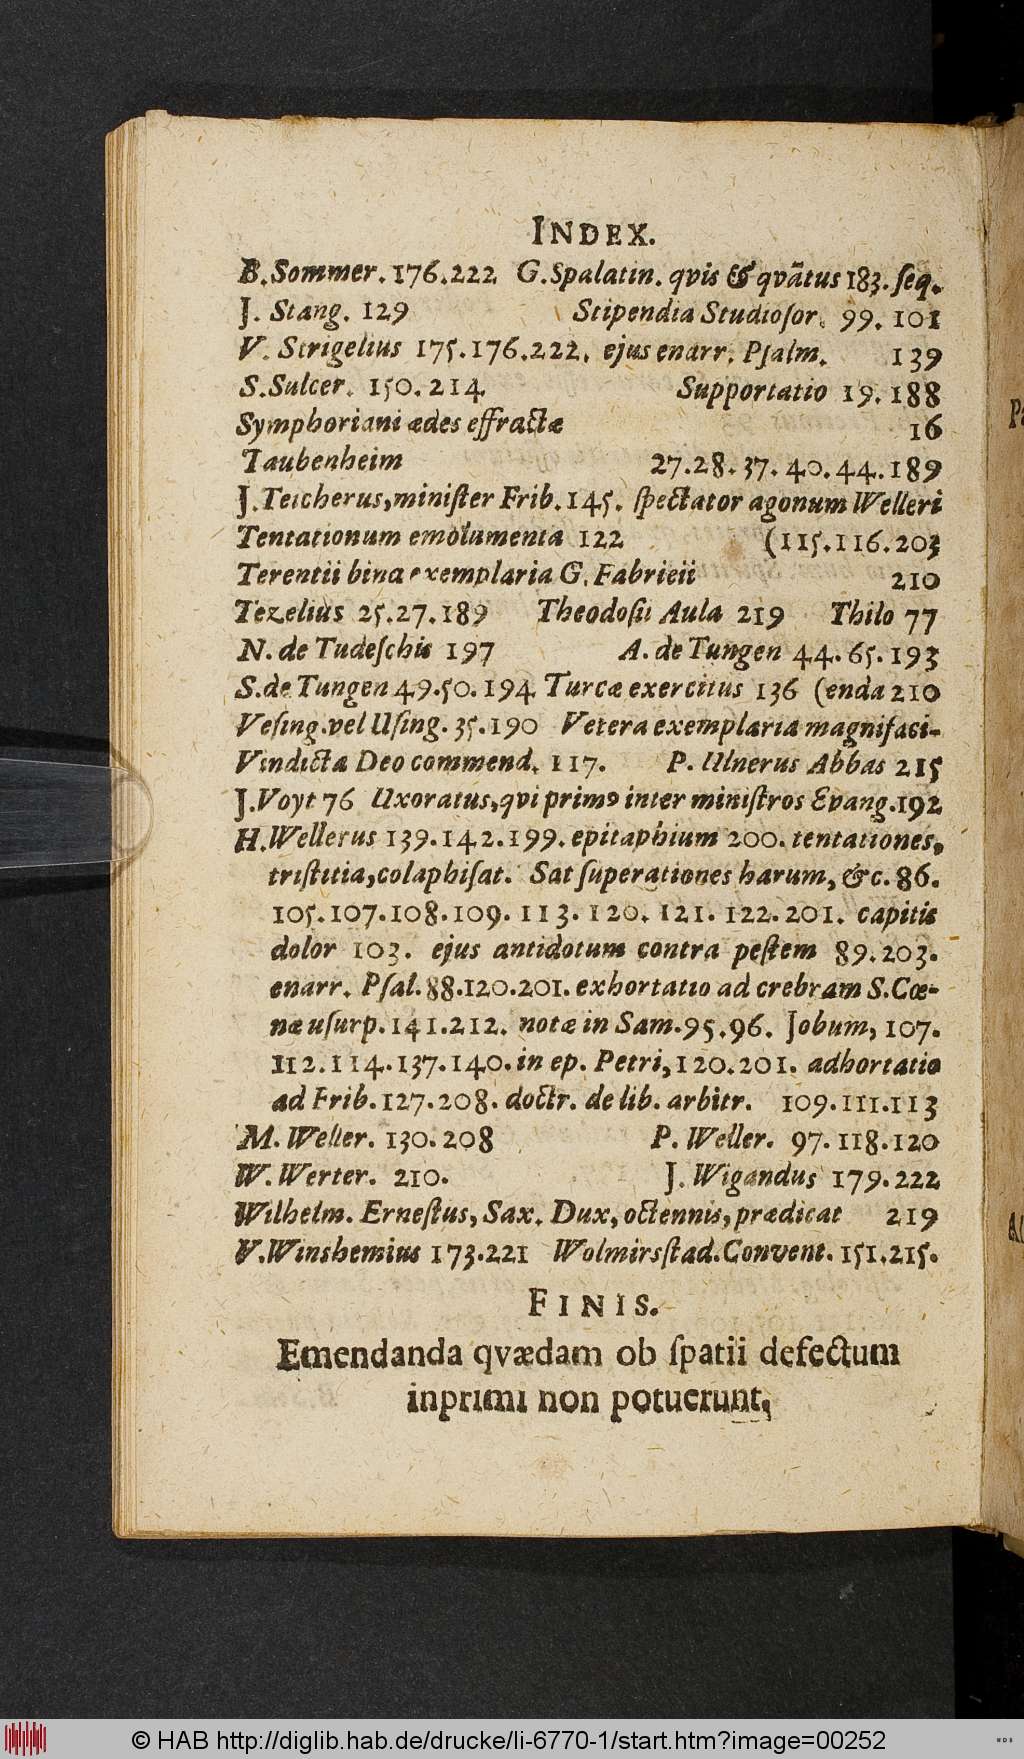 INDEX.
B. Sommer. 176.222 G. Spalatin. qvis & qvãtus 183. ſeq.
J. Stang. 129 Stipendia Studioſor. 99. 101
V. Strigelius 175.176.222. ejus enarr. Pſalm. 139
S. Sulcer. 150.214 Supportatio 19.188
Symphoriani ædes effractæ 16
Taubenheim 27.28.37.40.44.189
J. Teicherus, miniſter Frib. 145. ſpectator agonum Welleri
Tentationum emolumenta 122 (115.116.203
Terentii bina exemplaria G. Fabricii 210
Tezelius 25.27.189 Theodoſii Aula 219 Thilo 77
N. de Tudeſchis 197 A. de Tungen 44.65.193
S. de Tungen 49.50.194 Turcæ exercitus 136 (enda 210
Veſing. vel Uſing. 35.190 Vetera exemplaria magnifaci-
Vindicta Deo commend. 117. P. Ulnerus Abbas 215
J. Voyt 76 Uxoratus, qvi primꝰ inter miniſtros Evang. 192
H. Wellerus 139.142.199. epitaphium 200. tentationes,
triſtitia, colaphiſat. Sat ſuperationes harum, &c. 86.
105.107.108.109.113.120.121.122.201. capitis
dolor 103. ejus antidotum contra peſtem 89.203.
enarr. Pſal. 88.120.201. exhortatio ad crebram S. Cœ-
næ uſurp. 141.212. notæ in Sam. 95.96. Jobum, 107.
112.114.137.140. in ep. Petri, 120.201. adhortatio
ad Frib. 127.208. doctr. de lib. arbitr. 109.111.113
M. Weller. 130.208 P. Weller. 97.118.120
W. Werter. 210. J. Wigandus 179.222
Wilhelm. Erneſtus, Sax. Dux, octennis, prædicat 219
V. Winshemius 173.221 Wolmirsſtad. Convent. 151.215.
FINIS.
Emendanda qvædam ob ſpatii defectum
inprimi non potuerunt,
© HAB http://diglib.hab.de/drucke/li-6770-1/start.htm?image=00252